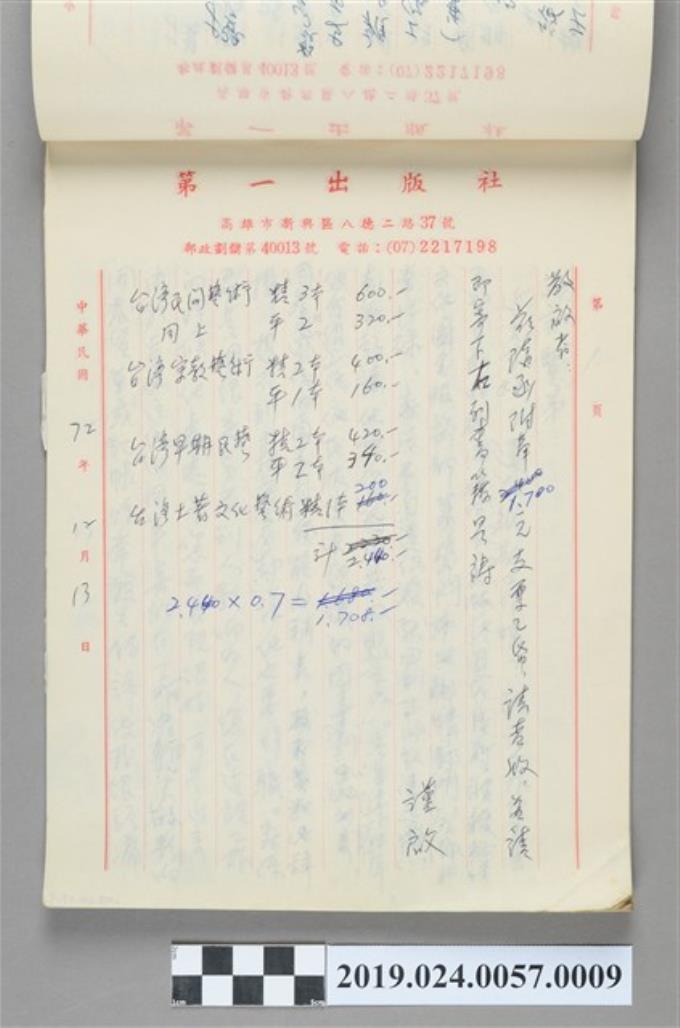 第一出版社
高雄市新興區八德二路37號
郵政劃儲第40013號 電話:(07)2217198
第 頁
敬啟者:
茲隨函附奉1.700元支票乙紙,請查收,並請
即寄下右列書籍是禱
謹啟
台湾民间藝術 精3本 600.-
同上 平2 320.-
台湾宗教藝術 精2本 400.-
平1本 160.-
台湾早期民藝 精2本 420.-
平2本 340.-
台湾土著文化藝術 精1本 200
計 2.440.-
2.440×0.7=1.708.-
中華民國72年12月13日
2019.024.0057.0009